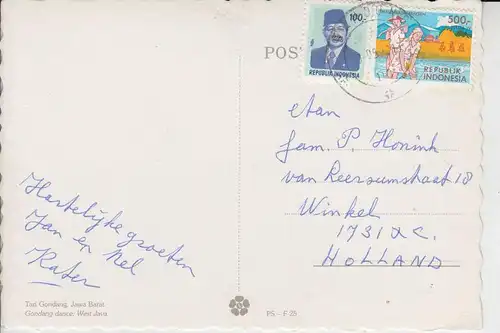 POS
100
REPUBLIK INDONESIA
500,-
REPUBLIK
INDONESIA
Hartelijke groeten
Jan en Nel
Kater
Tari Gondang, Jawa Barat.
Gondang dance: West Java
PS - F 25
aan
fam. P. Honink
van Reersumstraat 18
Winkel
1731 XC.
HOLLAND